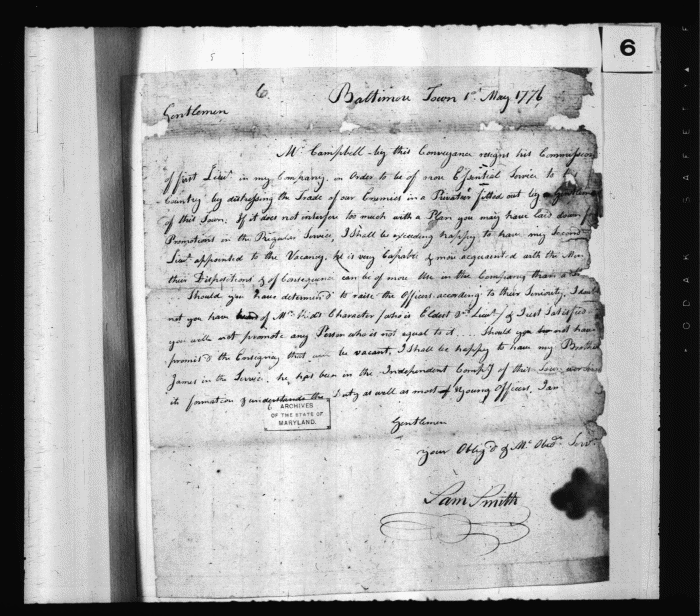 6
6. Baltimore Town 1st May 1776
Gentlemen
Mr Campbell by this Conveyance resigns his Commission
of first Lieut in my Company, in Order to be of more Essential Service to
Country by distressing the Trade of our Enemies in a Privateer fitted out by
of this Town: If it does not interfere too much with a Plan you may have laid down f
Promotions in the Regular Service, I shall be exceeding happy to have my Second
Lieut appointed to the Vacancy. he is very Capable & more acquainted with the Men
their Dispositions & of Consequence can be of more Use in the Company than a
Should you have determin'd to raise the Officers according to their Seniority, I
not you have of Mr Character /who is Eldest 2d Lieut/ & rest Satisfied
you will not promote any Person who is not equal to it.... Should you not have
promis'd the Ensigncy that will be vacant, I shall be happy to have my Brother
James in the Service. he has been in the Independent Compy of this Town
it formation & understands the Duty as well as most Young Officers. I am
Gentlemen
your Oblig'd & Mt Obedt Servt
Sam Smith
ARCHIVES
OF THE STATE OF
MARYLAND.
ODAK SAFETY